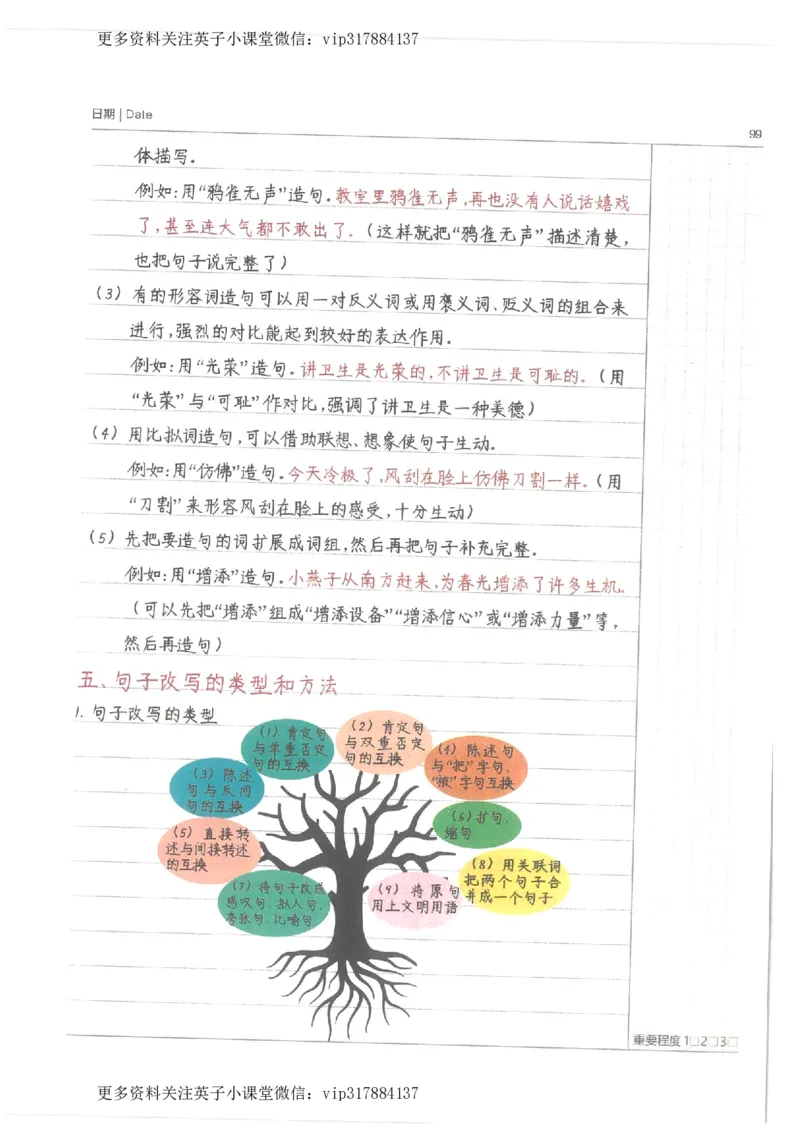 更多资料关注英子小课堂微信：vip317884137
日期 | Date
99
体描写。
例如：用“鸦雀无声”造句。教室里鸦雀无声，再也没有人说话嬉戏
了，甚至连大气都不敢出了。（这样就把“鸦雀无声”描述清楚，
也把句子说完整了）
（3）有的形容词造句可以用一对反义词或用褒义词、贬义词的组合来
进行，强烈的对比能起到较好的表达作用。
例如：用“光荣”造句。讲卫生是光荣的，不讲卫生是可耻的。（用
“光荣”与“可耻”作对比，强调了讲卫生是一种美德）
（4）用比拟词造句，可以借助联想、想象使句子生动。
例如：用“仿佛”造句。今天冷极了，风刮在脸上仿佛刀割一样。（用
“刀割”来形容风刮在脸上的感受，十分生动）
（5）先把要造句的词扩展成词组，然后再把句子补充完整。
例如：用“增添”造句。小燕子从南方赶来，为春光增添了许多生机。
（可以先把“增添”组成“增添设备”“增添信心”或“增添力量”等，
然后再造句）
五、句子改写的类型和方法
1. 句子改写的类型
（1）肯定句
与单重否定
句的互换
（2）肯定句
与双重否定
句的互换
（4）陈述句
与“把”字句、
“被”字句互换
（3）陈述
句与反问
句的互换
（6）扩句、
缩句
（5）直接转
述与间接转述
的互换
（8）用关联词
把两个句子合
并成一个句子
（7）将句子改成
感叹句、拟人句、
夸张句、比喻句
（9）将原句
用上文明用语
重要程度 1□2□3□
更多资料关注英子小课堂微信：vip317884137